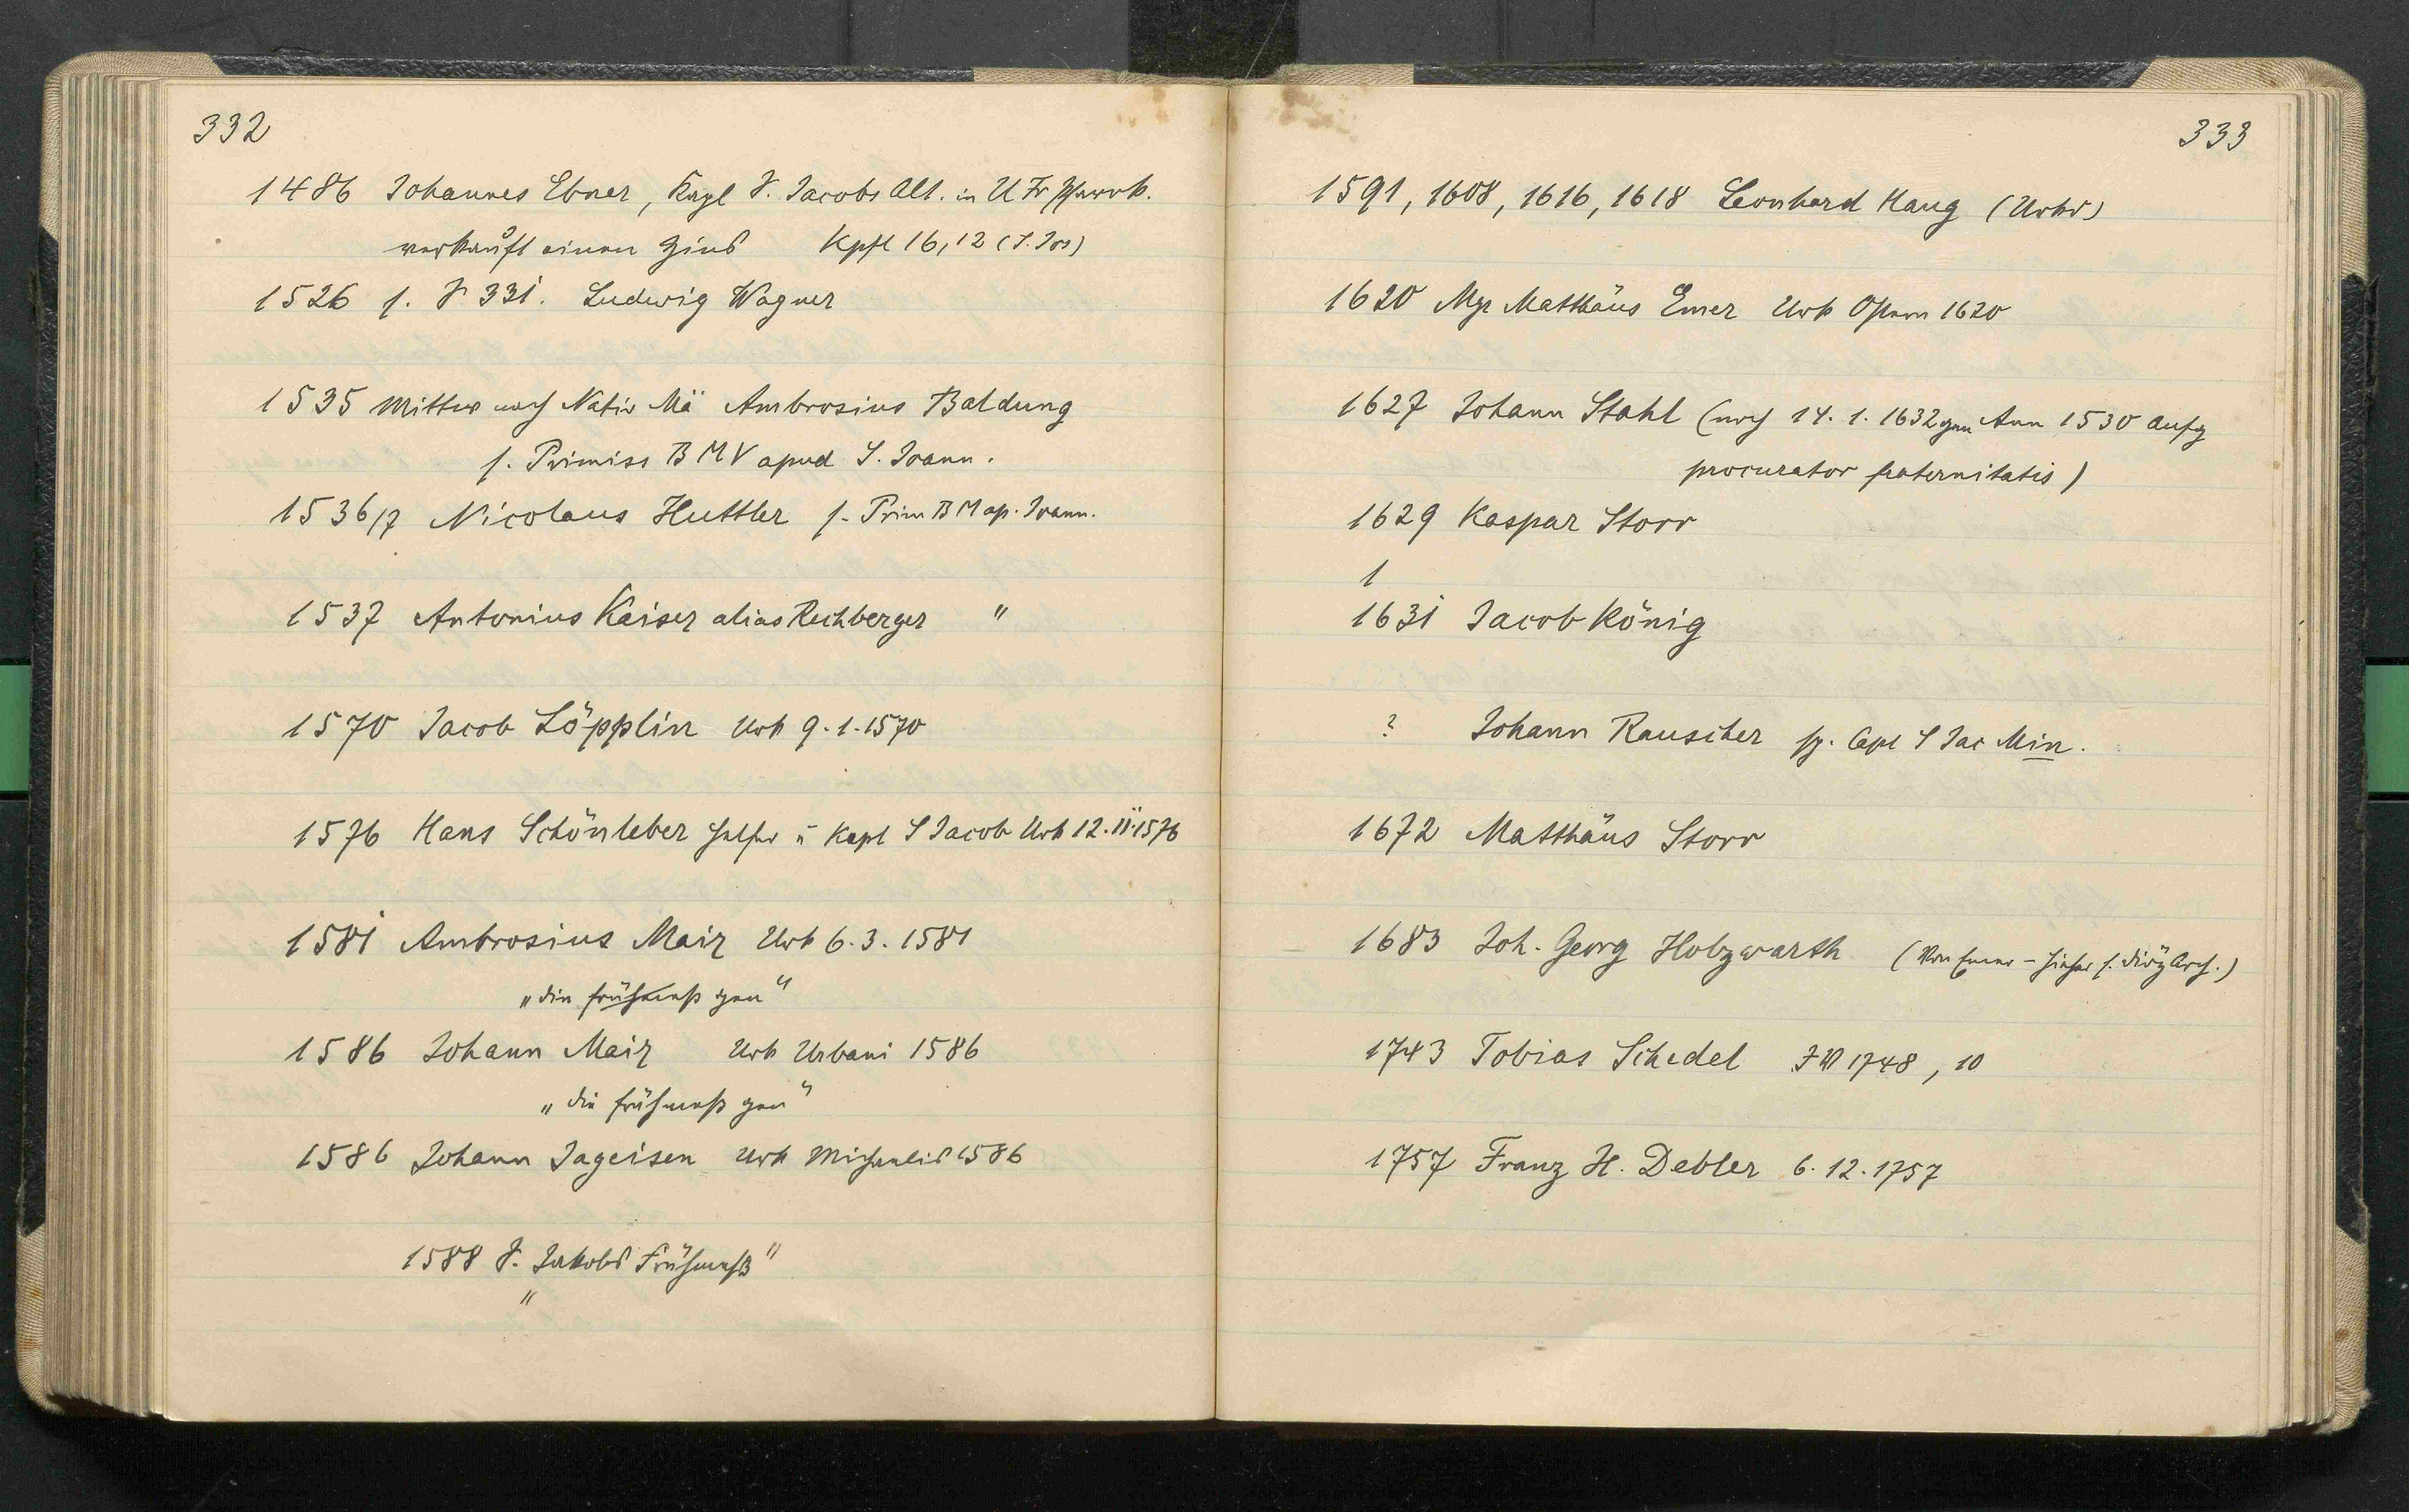 332
1486 Johannes Ebner, Kapl S. Jacobs Alt. in U Fr Pfarrk.
verkauft einen Zins Kpfl 16,12 (S. Jos)
1526 s. S 331. Ludwig Wagner
1535 Mittw nach Nativ Mä Ambrosius Baldung
s. Primiss B M V apud S. Joann.
1536/7 Nicolaus Huttler s. Prim B M ap. Joann.
1537 Antonius Kaiser alias Rechberger "
1570 Jacob Löpplin Urk 9.1.1570
1576 Hans Schönleber Helfer u Kapl S Jacob Urk 12.11.1576
1581 Ambrosius Mair Urk 6.3.1581
"die frühmeß gen"
1586 Johann Mair Urk Urbani 1586
"die frühmeß gen"
1586 Johann Jageisen Urk Michaelis 1586
1588 "S. Jakobs Frühmeß"
333
1591, 1608, 1616, 1618 Leonhard Haug (Urkd)
1620 Mgr Matthäus Emer Urk Ostern 1620
1627 Johann Stahl (noch 14.1.1632 gen Ann 1530 Aufz
procurator fraternitatis)
1629 Kaspar Storr
1
1631 Jacob König
? Johann Rauscher sp. Capl S Jac Min.
1672 Matthäus Storr
1683 Joh. Georg Holzwarth ( - hieher s. DiözArch.)
1743 Tobias Schedel 1748, 10
1757 Franz H. Debler 6.12.1757